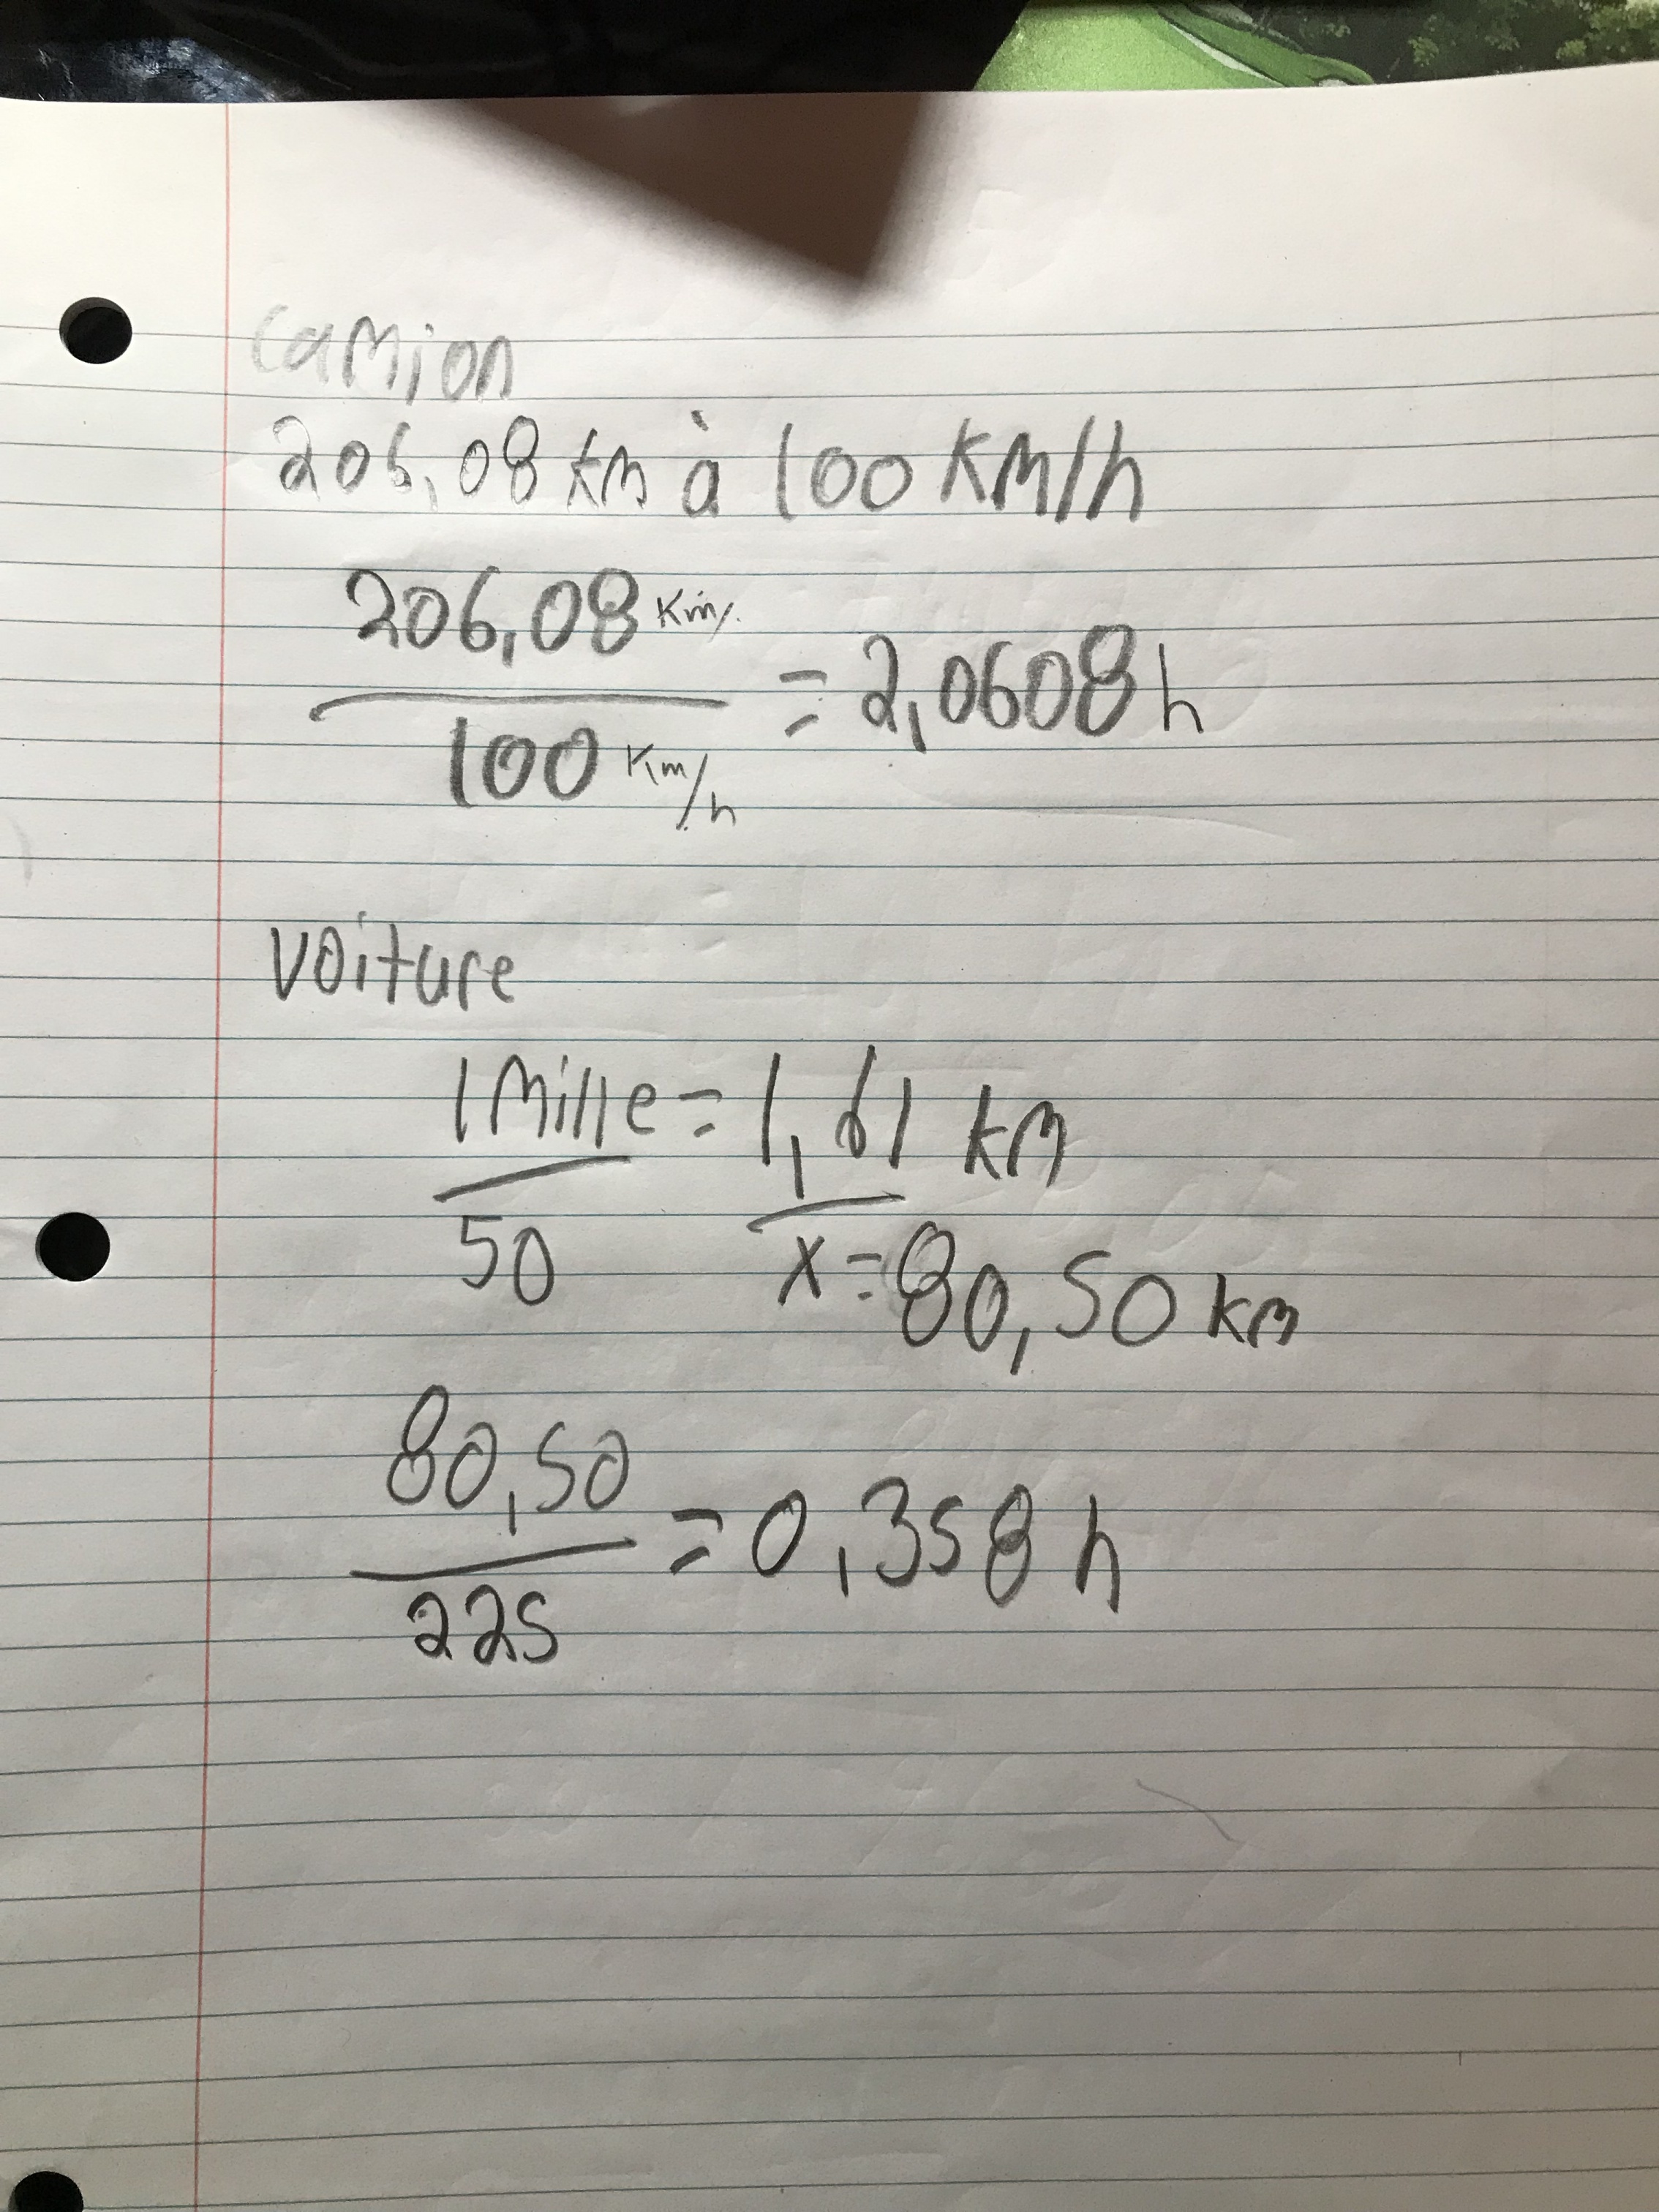 Camion
206,08 km à 100 KM/h
206,08 Km/
100 Km/h
= 2,0608 h
Voiture
1 Mille = 1,61 km
50 x = 80,50 km
80,50
225
= 0,358 h